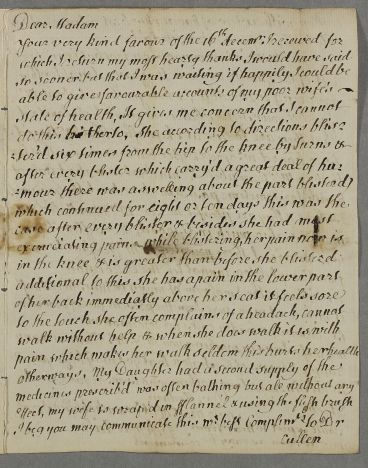 Dear Madam
Your very kind favour of the 16th decemr. I received for
which I return my most hearty thanks I would have said
so sooner but that I was waiting if happily I could be
able to give favourable accounts of my poor wife's
state of health, It gives me concern that I cannot
do this hitherto, She according to directions blist
:ter'd six times from the hip to the knee by turns &
after every blister which carry'd a great deal of hu
:mour there was a swelling about the part blistead
which continued for eight or ten days this was the
case after every blister & besides she had most
excruciating pains while blistering, her pain now is
in the knee & is greater than before she blister'd
additional to this she has a pain in the lower part
of her back immediatly above her seat it feels sore
to the touch she often complains of a headach, cannot
walk without help & when she does walk it is with
pain which makes her walk seldom this hurts her health
otherways, My Daughter had a second supply of the
medicins prescrib'd was often bathing but all without any
effect, my wife is wrap'd in fflannel & using the flesh brush
I beg you may communicate this wt best Complimts to Dr
Cullen